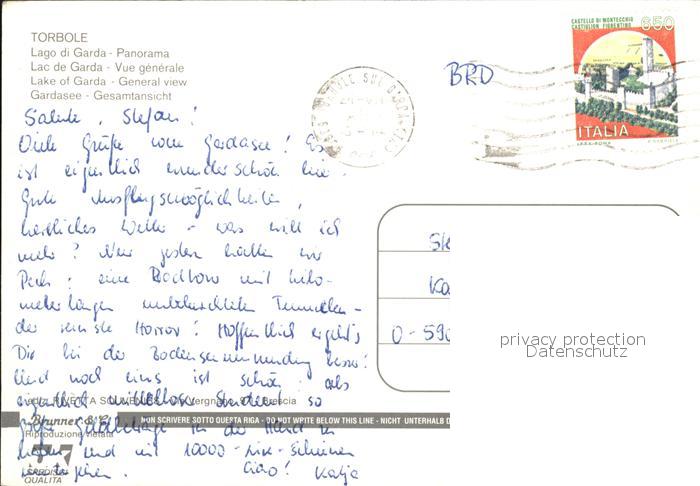 TORBOLE
Lago di Garda - Panorama
Lac de Garda - Vue générale
Lake of Garda - General view
Gardasee - Gesamtansicht
CASTELLO DI MONTECCHIO
CASTIGLION FIORENTINO
650
ITALIA
BRD
Salute, Stefan!
Viele Grüße vom Gardasee! Es
ist eigentlich wunderschön hier.
Gute Ausflugsmöglichkeiten,
herrliches Wetter - was will ich
mehr? Nur gestern hatten wir
Pech: eine Radtour mit kilo-
meterlangen unbeleuchteten Tunneln -
der reinste Horror! Hoffentlich ergeht's
Dir bei der Bodenseeumrundung besser!
Und noch eins ist schön: als
eigentlich mittellose Studies so
in der Hand zu
haben und mit 10000-Lire-Scheinen
Ciao! Katja
0-590
Brescia
Brunner & C.
Riproduzione vietata
NON SCRIVERE SOTTO QUESTA RIGA - DO NOT WRITE BELOW THIS LINE - NICHT UNTERHALB D
QUALITA
privacy protection
Datenschutz